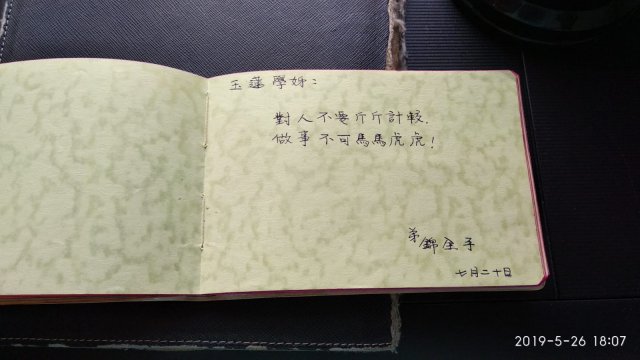 玉蓮學姊：
對人不要斤斤計較.
做事不可馬馬虎虎!
弟 錦全 手
七月二十日
2019-5-26 18:07